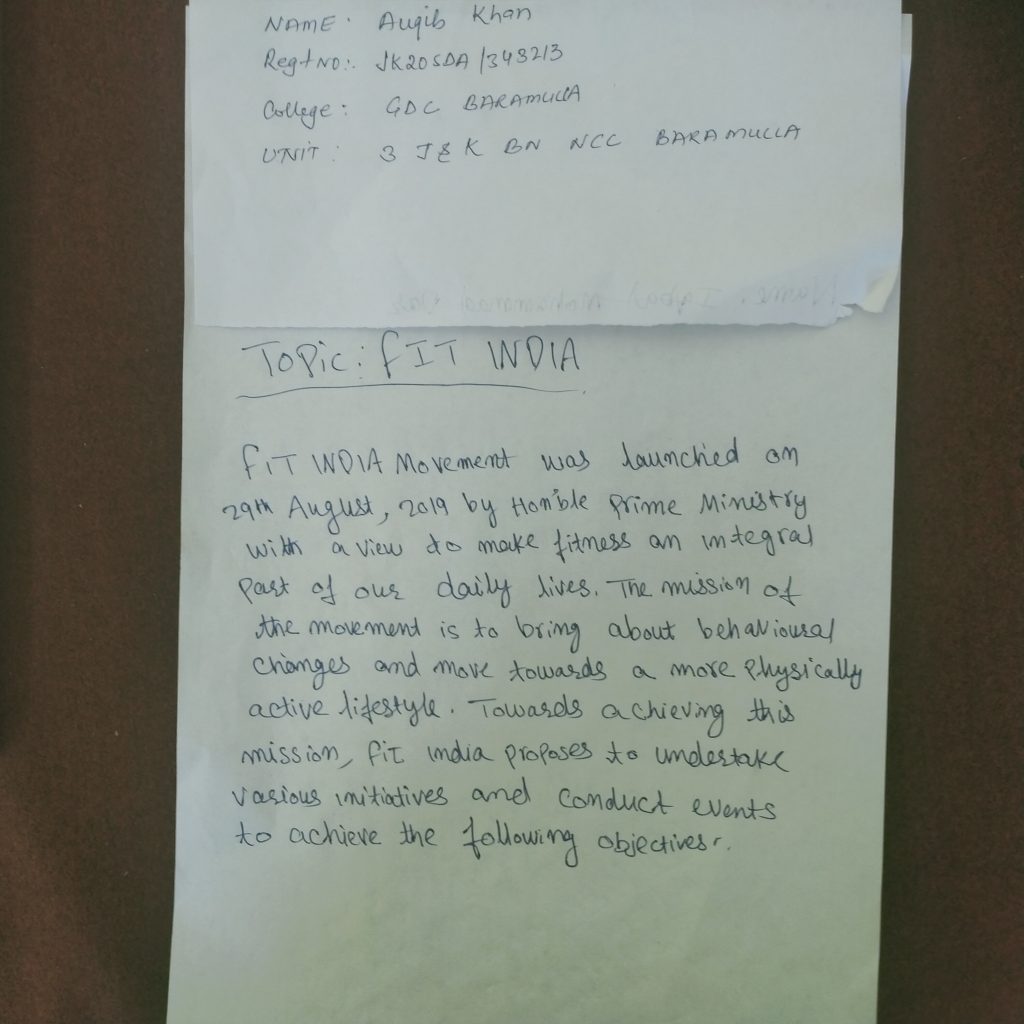 NAME: Auqib Khan
Regt NO:. JK20SDA/348213
College: GDC BARAMULLA
UNIT: 3 J&K BN NCC BARAMULLA
Name. Iqbal Mohammad
Topic: FIT INDIA
FIT INDIA Movement was launched on
29th August, 2019 by Hon'ble Prime Ministry
with a view to make fitness an integral
Part of our daily lives. The mission of
the movement is to bring about behavioural
changes and move towards a more physically
active lifestyle. Towards achieving this
mission, Fit india proposes to undertake
various initiatives and conduct events
to achieve the following objectives:.